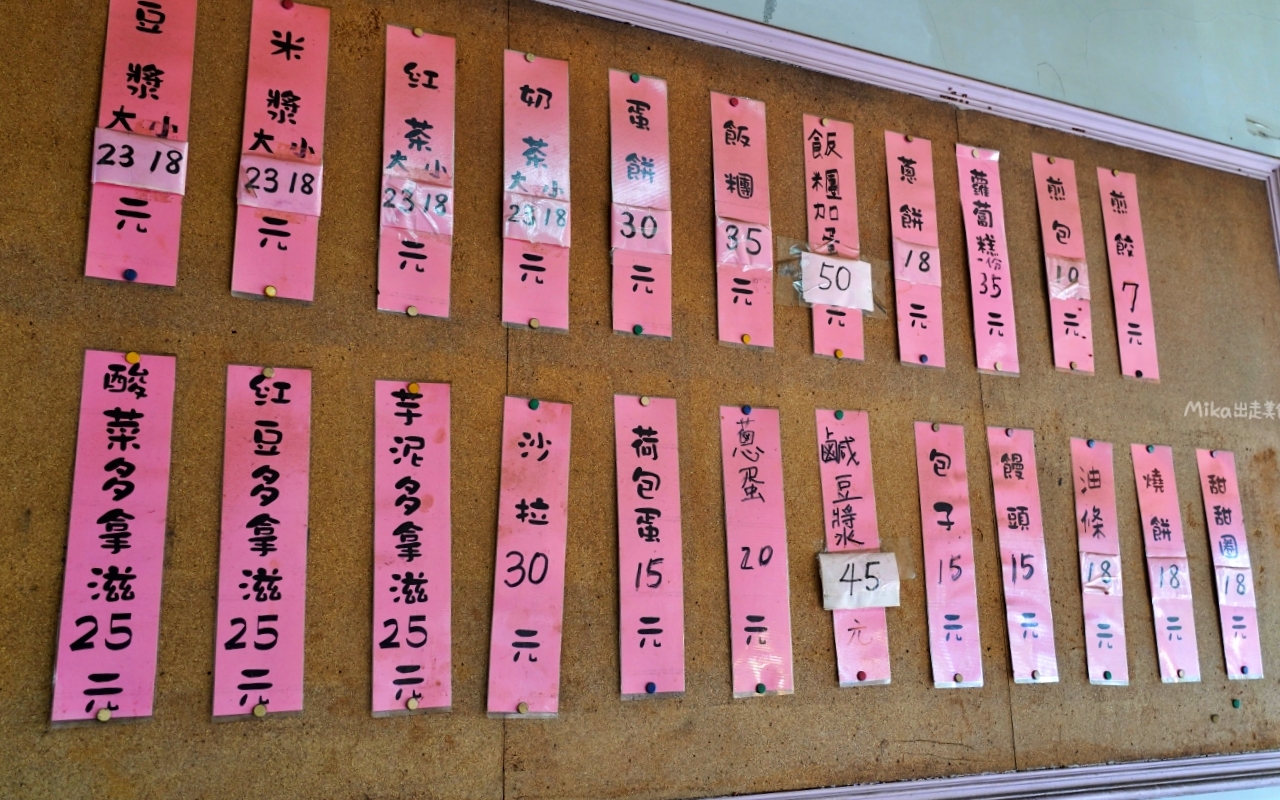 豆漿 大 小 23 18 元
米漿 大 小 23 18 元
紅茶 大 小 23 18 元
奶茶 大 小 23 18 元
蛋餅 30 元
飯糰 35 元
飯糰加蛋 50 元
蔥餅 18 元
蘿蔔糕 一份 35 元
煎包 10 元
煎餃 7 元
酸菜多拿滋 25 元
紅豆多拿滋 25 元
芋泥多拿滋 25 元
沙拉 30 元
荷包蛋 15 元
蔥蛋 20 元
鹹豆漿 45 元
包子 15 元
饅頭 15 元
油條 18 元
燒餅 18 元
甜甜圈 18 元
Mika出走美